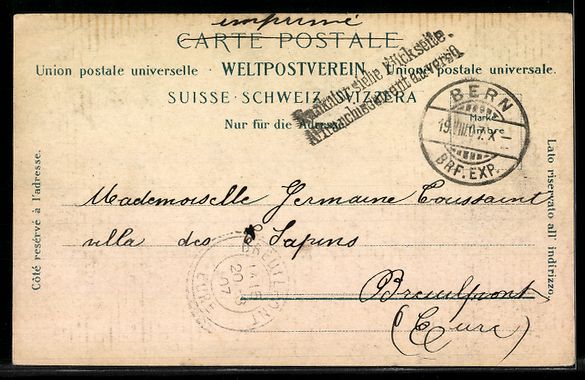 imprimé
CARTE POSTALE
Union postale universelle · WELTPOSTVEREIN · Unione postale universale.
SUISSE · SCHWEIZ · SVIZZERA
Nur für die Adresse
Frankatur siehe Rückseite.
Affranchissement au verso.
BERN
Marke
Timbre
BRF. EXP.
Côté réservé à l'adresse.
Lato riservato all' indirizzo.
Mademoiselle Germaine Toussaint
villa des Sapins
BREUILPONT
20
07
EURE
Breuilpont
(Eure)